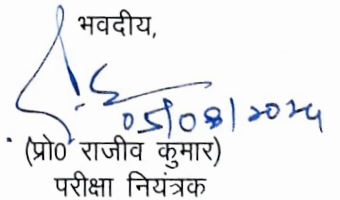 भवदीय,
05/08/2024
(प्रो० राजीव कुमार)
परीक्षा नियंत्रक